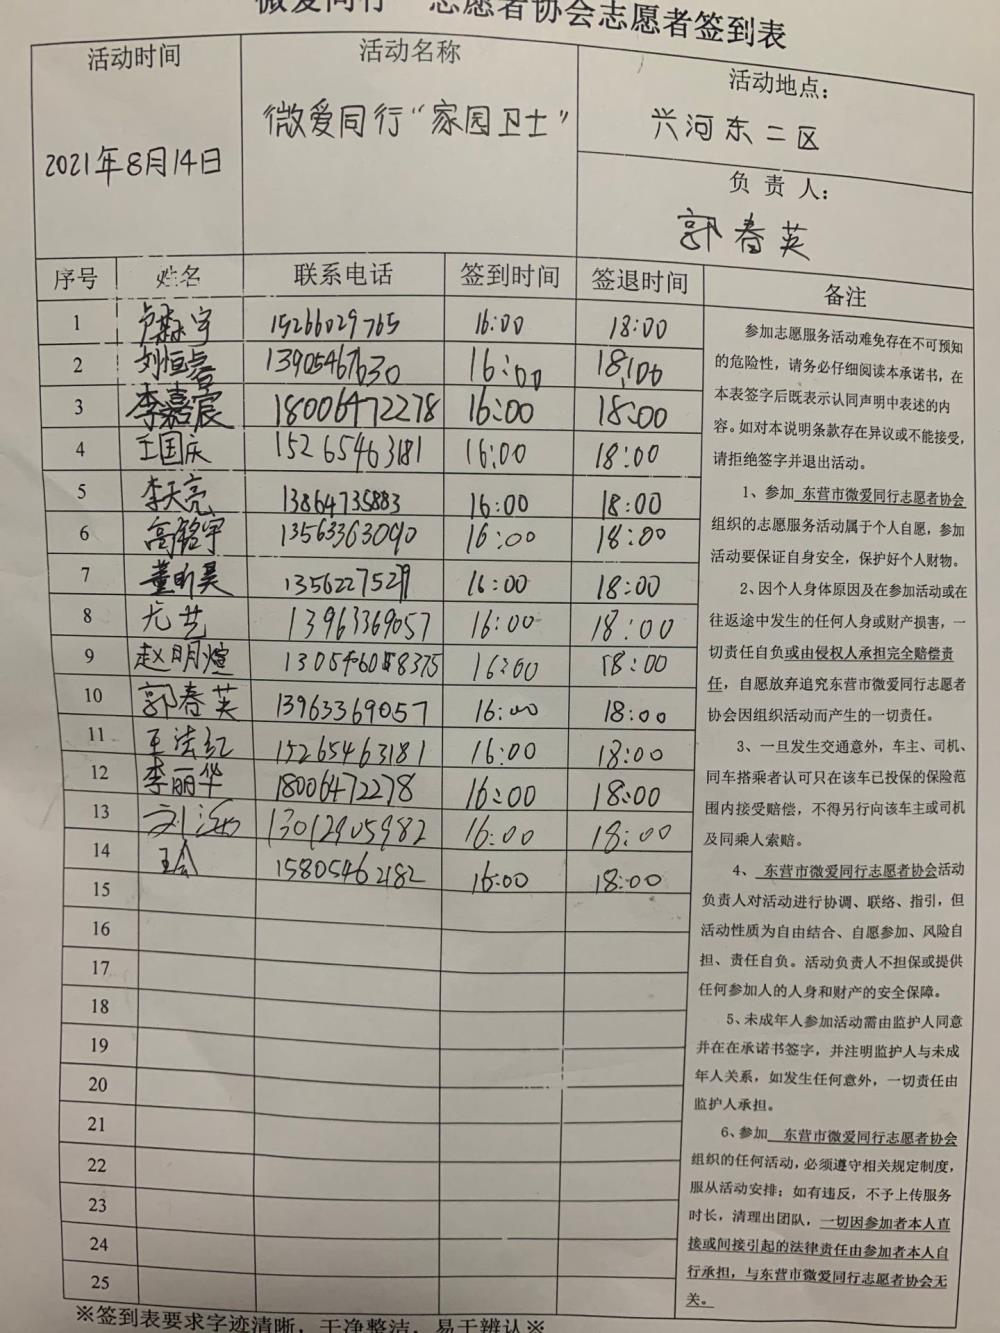 微爱同行 志愿者协会志愿者签到表
活动时间
2021年8月14日
活动名称
微爱同行“家园卫士”
活动地点：
兴河东二区
负 责 人：
郭春英
序号 姓名 联系电话 签到时间 签退时间 备注
1 卢森宇 15266029765 16:00 18:00
2 刘恒嘉 13905467630 16:00 18:00
3 李嘉宸 18006472278 16:00 18:00
4 王国庆 15265463181 16:00 18:00
5 李天亮 13864735883 16:00 18:00
6 高铭宇 13563363090 16:00 18:00
7 董昕昊 1356227529 16:00 18:00
8 尤艺 13963369057 16:00 18:00
9 赵明煊 16:00 18:00
10 郭春英 13963369057 16:00 18:00
11 王法红 15265463181 16:00 18:00
12 李丽华 18006472278 16:00 18:00
13 刘 13012905982 16:00 18:00
14 15805462182 16:00 18:00
15
16
17
18
19
20
21
22
23
24
25
参加志愿服务活动难免存在不可预知
的危险性，请务必仔细阅读本承诺书，在
本表签字后既表示认同声明中表述的内
容。如对本说明条款存在异议或不能接受，
请拒绝签字并退出活动。
1、参加 东营市微爱同行志愿者协会
组织的志愿服务活动属于个人自愿，参加
活动要保证自身安全，保护好个人财物。
2、因个人身体原因及在参加活动或在
往返途中发生的任何人身或财产损害，一
切责任自负或由侵权人承担完全赔偿责
任，自愿放弃追究东营市微爱同行志愿者
协会因组织活动而产生的一切责任。
3、一旦发生交通意外，车主、司机、
同车搭乘者认可只在该车已投保的保险范
围内接受赔偿，不得另行向该车主或司机
及同乘人索赔。
4、 东营市微爱同行志愿者协会活动
负责人对活动进行协调、联络、指引，但
活动性质为自由结合、自愿参加、风险自
担、责任自负。活动负责人不担保或提供
任何参加人的人身和财产的安全保障。
5、未成年人参加活动需由监护人同意
并在在承诺书签字，并注明监护人与未成
年人关系，如发生任何意外，一切责任由
监护人承担。
6、参加 东营市微爱同行志愿者协会
组织的任何活动，必须遵守相关规定制度，
服从活动安排；如有违反，不予上传服务
时长，清理出团队，一切因参加者本人直
接或间接引起的法律责任由参加者本人自
行承担，与东营市微爱同行志愿者协会无
关。
※签到表要求字迹清晰，干净整洁，易于辨认※